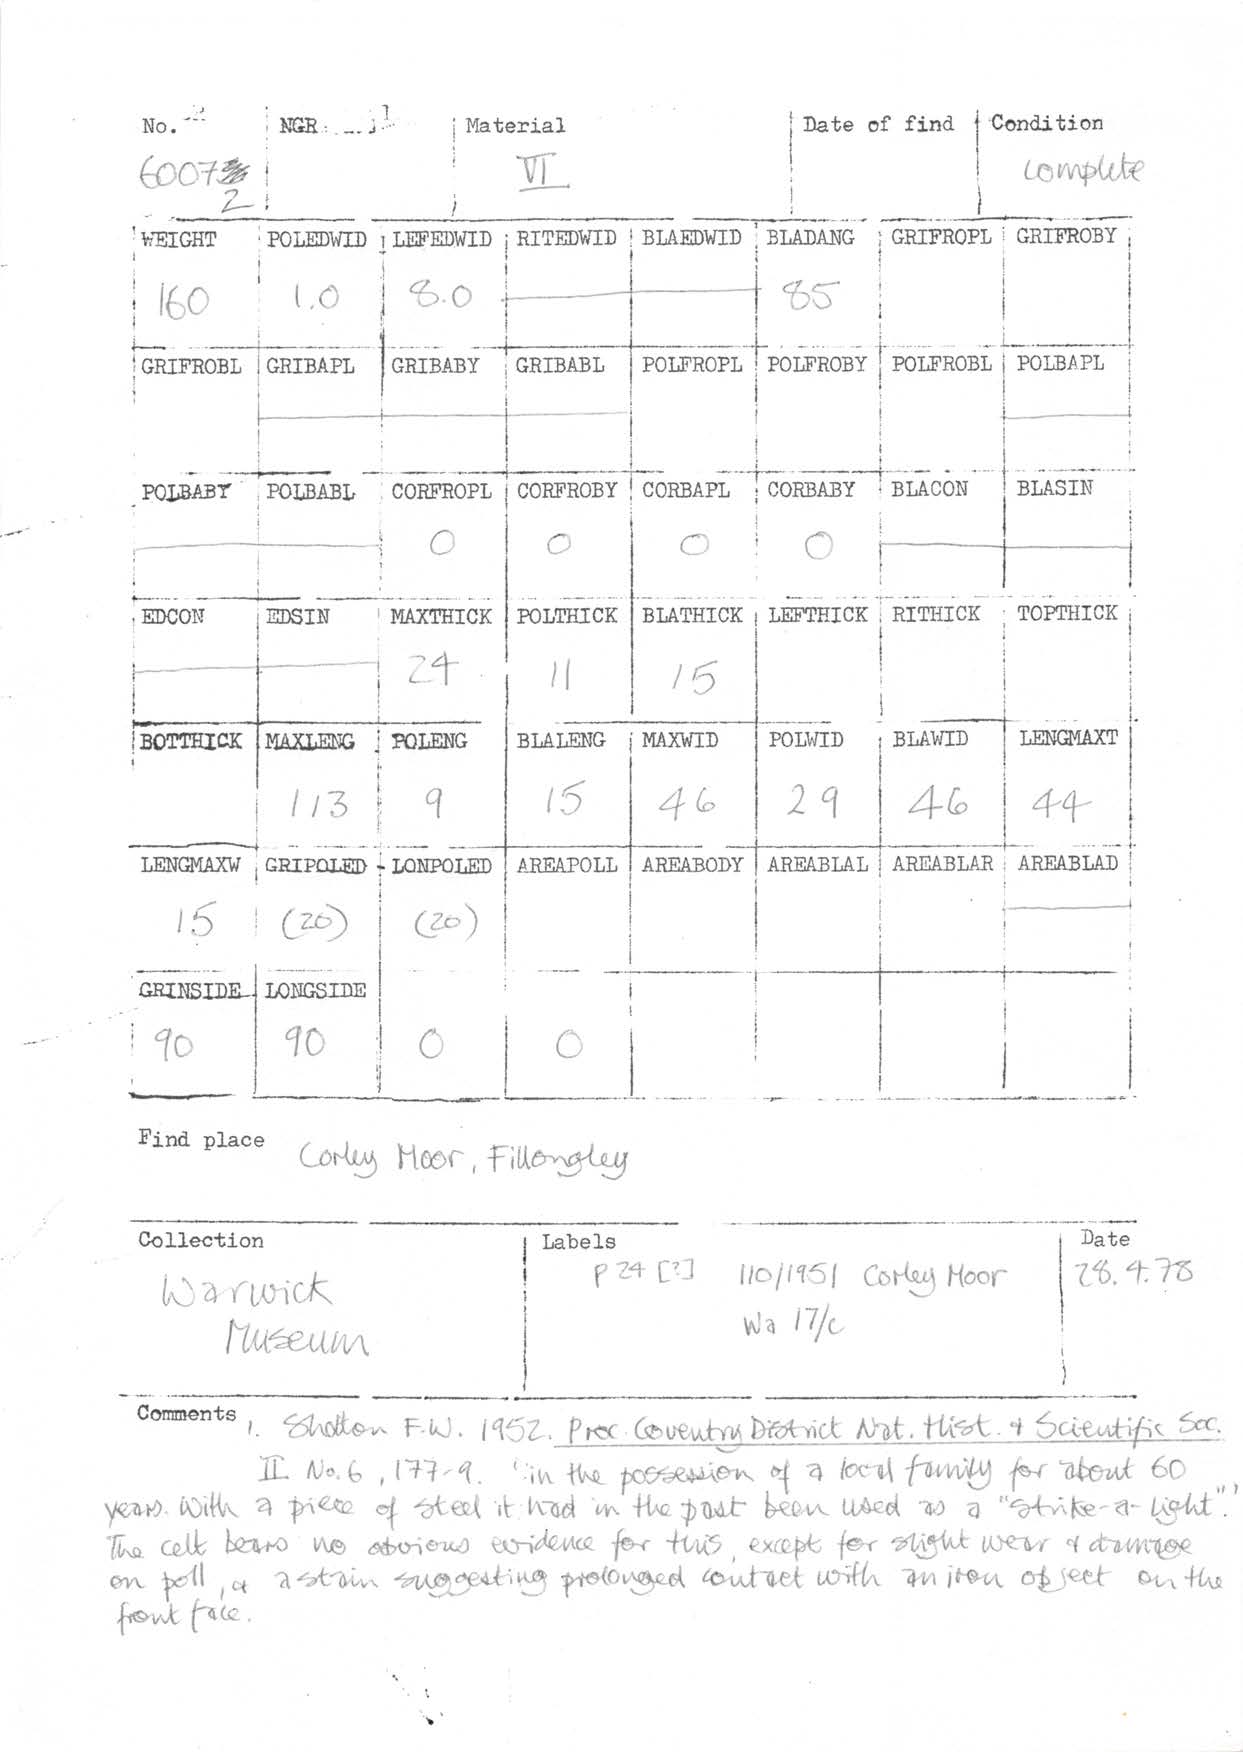 No. NGR Material Date of find Condition
60072 VI complete
WEIGHT POLEDWID LEFEDWID RITEDWID BLAEDWID BLADANG GRIFROPL GRIFROBY
160 1.0 8.0 85
GRIFROBL GRIBAPL GRIBABY GRIBABL POLFROPL POLFROBY POLFROBL POLBAPL
POLBABY POLBABL CORFROPL CORFROBY CORBAPL CORBABY BLACON BLASIN
0 0 0 0
EDCON EDSIN MAXTHICK POLTHICK BLATHICK LEFTHICK RITHICK TOPTHICK
24 11 15
BOTTHICK MAXLENG POLENG BLALENG MAXWID POLWID BLAWID LENGMAXT
113 9 15 46 29 46 44
LENGMAXW GRIPOLED LONPOLED AREAPOLL AREABODY AREABLAL AREABLAR AREABLAD
15 (20) (20)
GRINSIDE LONGSIDE
90 90 0 0
Find place Corley Moor, Fillongley
Collection Labels Date
P 24 [?] 110/1951 Corley Moor 28.4.78
Warwick
Wa 17/c
Museum
Comments 1. Shotton F.W. 1952. Proc. Coventry District Nat. Hist. & Scientific Soc.
II No. 6, 177-9. 'in the possession of a local family for about 60
years. With a piece of steel it had in the past been used as a "strike-a-light".'
The celt bears no obvious evidence for this, except for slight wear & damage
on poll, & a stain suggesting prolonged contact with an iron object on the
front face.